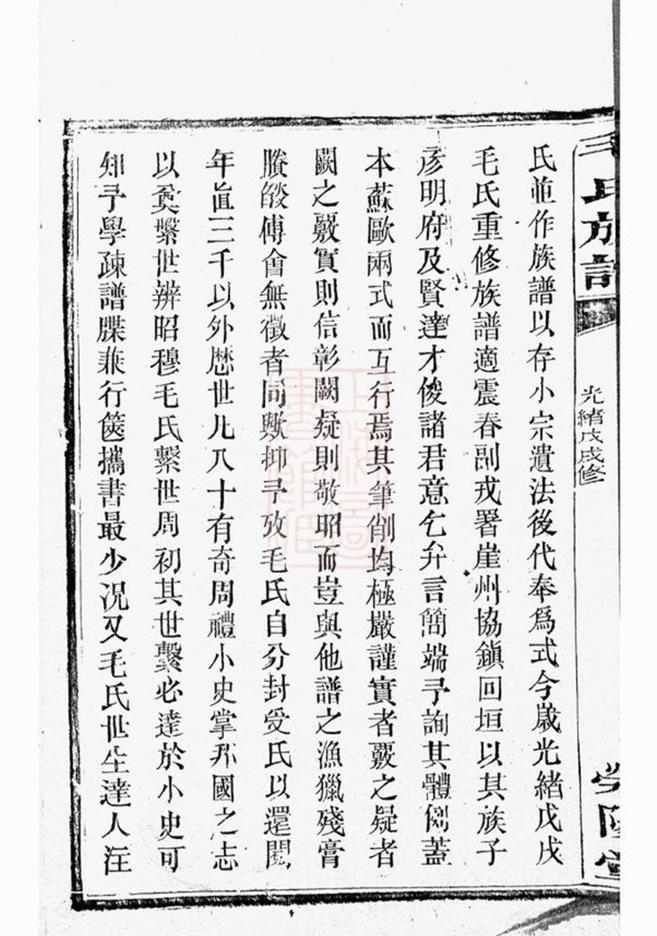 毛氏族譜
光緒戊戌修
氏並作族譜以存小宗遺法後代奉爲式今歲光緒戊戌
毛氏重修族譜適震春副戎署崖州協鎮回垣以其族子
彥明府及賢達才俊諸君意乞弁言簡端予詢其體例蓋
本蘇歐兩式而互行焉其筆削均極嚴謹實者覈之疑者
闕之覈實則信彰闕疑則敬昭而豈與他譜之漁獵殘膏
賸燄傅會無徵者同歟抑予攷毛氏自分封受氏以還閱
年直三千以外歷世凡八十有奇周禮小史掌邦國之志
以奠繫世辨昭穆毛氏繫世周初其世繫必達於小史可
知予學疎譜牒兼行篋攜書最少況又毛氏世生達人汪